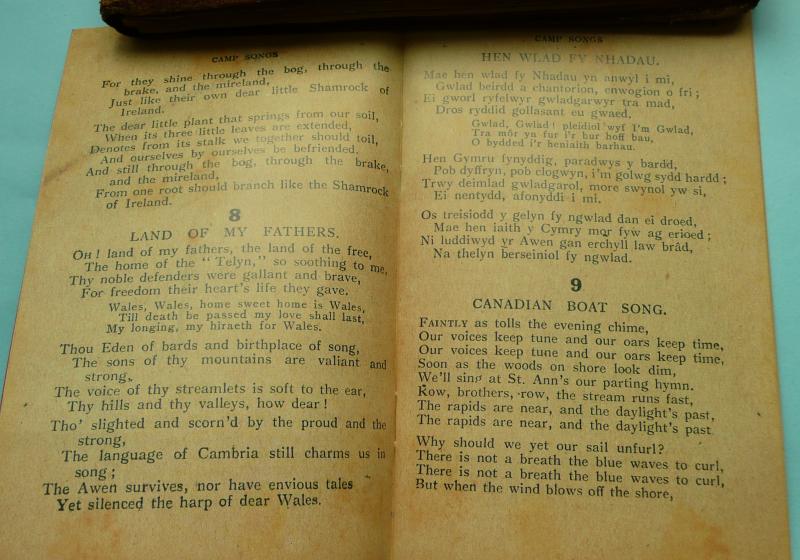 CAMP SONGS
For they shine through the bog, through the
brake, and the mireland,
Just like their own dear little Shamrock of
Ireland.
The dear little plant that springs from our soil,
When its three little leaves are extended,
Denotes from its stalk we together should toil,
And ourselves by ourselves be befriended.
And still through the bog, through the brake,
and the mireland,
From one root should branch like the Shamrock
of Ireland.
8
LAND OF MY FATHERS.
OH! land of my fathers, the land of the free,
The home of the "Telyn," so soothing to me,
Thy noble defenders were gallant and brave,
For freedom their heart's life they gave.
Wales, Wales, home sweet home is Wales,
Till death be passed my love shall last,
My longing, my hiraeth for Wales.
Thou Eden of bards and birthplace of song,
The sons of thy mountains are valiant and
strong,
The voice of thy streamlets is soft to the ear,
Thy hills and thy valleys, how dear!
Tho' slighted and scorn'd by the proud and the
strong,
The language of Cambria still charms us in
song;
The Awen survives, nor have envious tales
Yet silenced the harp of dear Wales.
CAMP SONGS
HEN WLAD FY NHADAU.
Mae hen wlad fy Nhadau yn anwyl i mi,
Gwlad beirdd a chantorion, enwogion o fri;
Ei gworl ryfelwyr gwladgarwyr tra mad,
Dros ryddid gollasant eu gwaed.
Gwlad, Gwlad! pleidiol wyf I'm Gwlad,
Tra môr yn fur i'r bur hoff bau,
O bydded i'r heniaith barhau.
Hen Gymru fynyddig, paradwys y bardd,
Pob dyffryn, pob clogwyn, i'm golwg sydd hardd;
Trwy deimlad gwladgarol, more swynol yw si,
Ei nentydd, afonyddi i mi.
Os treisiodd y gelyn fy ngwlad dan ei droed,
Mae hen iaith y Cymry mor fyw ag erioed;
Ni luddiwyd yr Awen gan erchyll law brâd,
Na thelyn berseiniol fy ngwlad.
9
CANADIAN BOAT SONG.
FAINTLY as tolls the evening chime,
Our voices keep tune and our oars keep time,
Our voices keep tune and our oars keep time,
Soon as the woods on shore look dim,
We'll sing at St. Ann's our parting hymn.
Row, brothers, row, the stream runs fast,
The rapids are near, and the daylight's past,
The rapids are near, and the daylight's past
Why should we yet our sail unfurl?
There is not a breath the blue waves to curl,
There is not a breath the blue waves to curl,
But when the wind blows off the shore,